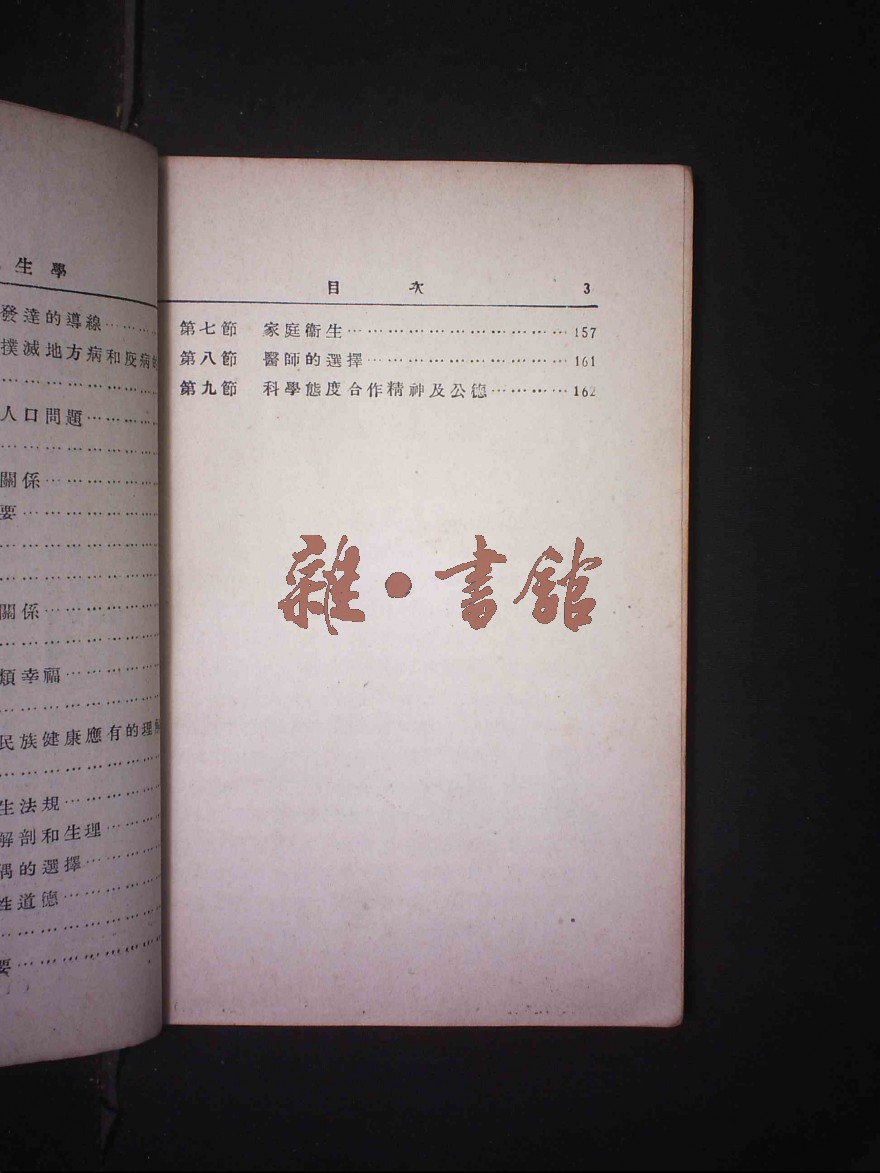 生學
發達的導線…………
撲滅地方病和疫病的
……………………
人口問題……………
……………………
關係…………………
要……………………
……………………
……………………
關係…………………
……………………
類幸福………………
……………………
民族健康應有的理解
……………………
生法規………………
解剖和生理…………
偶的選擇……………
性道德………………
……………………
要……………………
目 次 3
第七節 家庭衞生…………………………157
第八節 醫師的選擇………………………161
第九節 科學態度合作精神及公德…………162
雜·書館